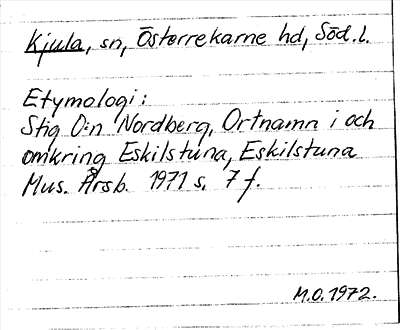 Kjula, sn, Österrekarne hd, Söd. l.
Etymologi:
Stig O:n Nordberg, Ortnamn i och
omkring Eskilstuna, Eskilstuna
Mus. Årsb. 1971 s. 7 f.
M.O. 1972.